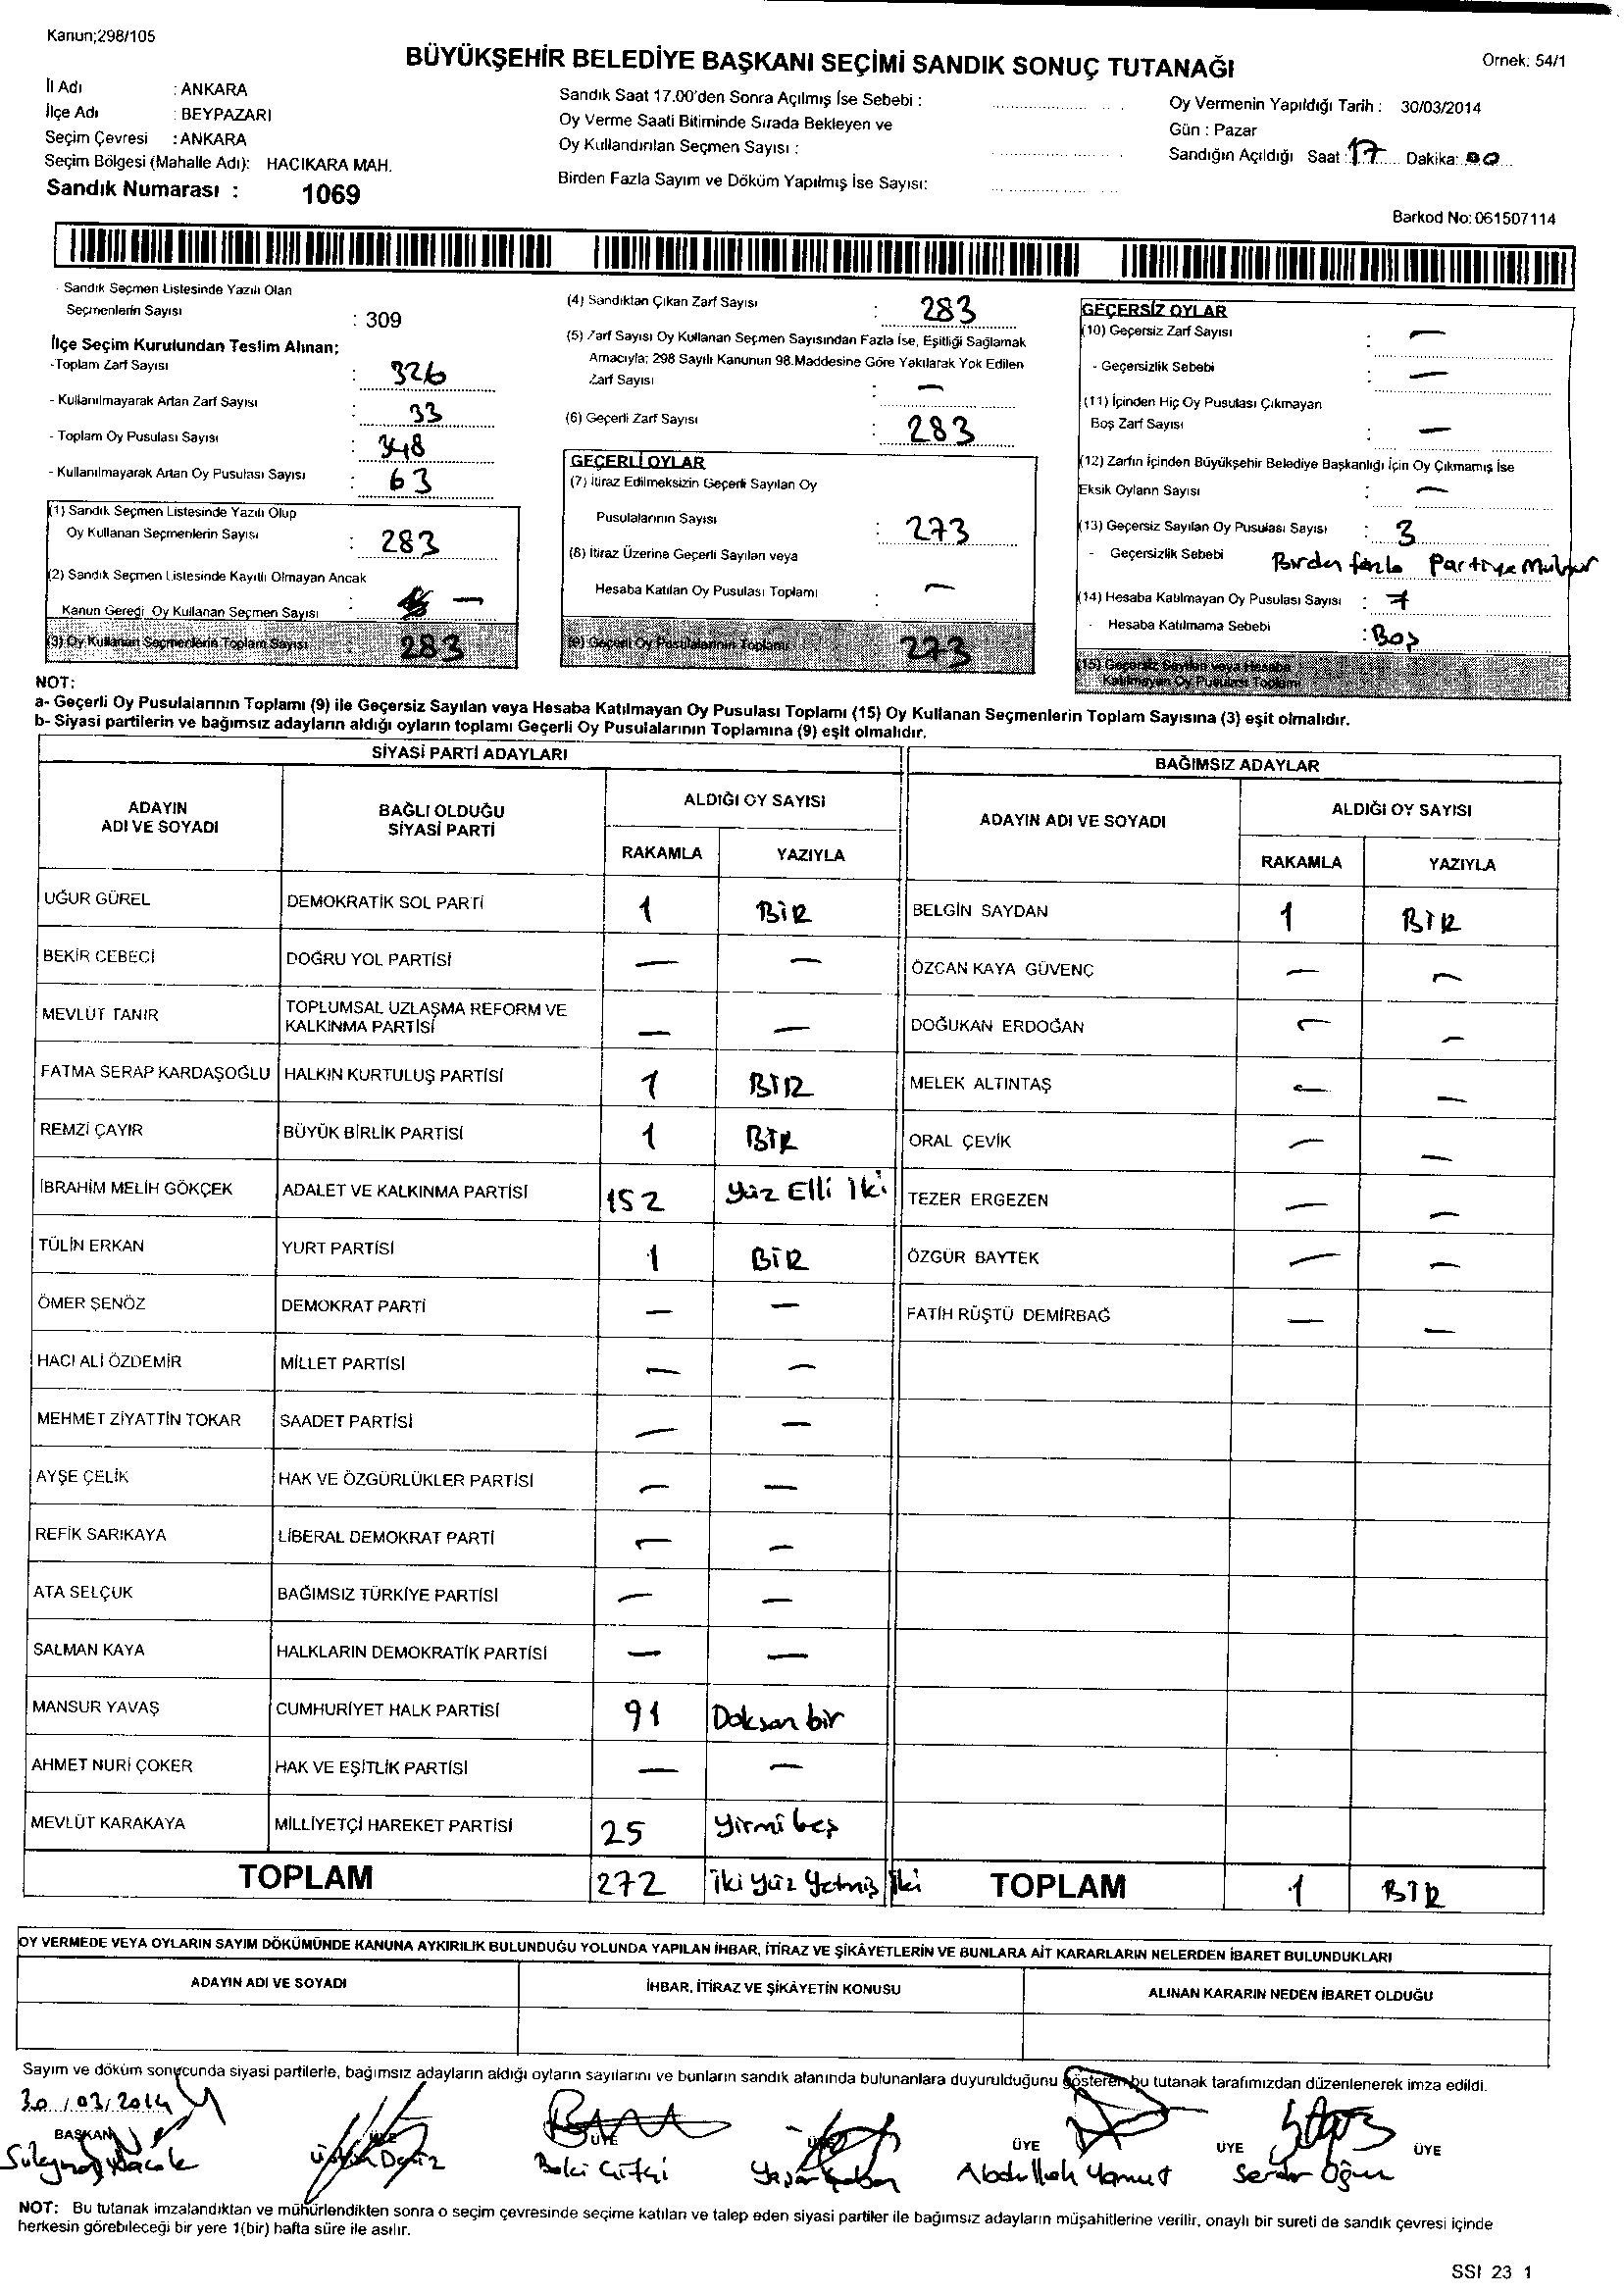 Kanun;298/105
BÜYÜKŞEHİR BELEDİYE BAŞKANI SEÇİMİ SANDIK SONUÇ TUTANAĞI
Örnek: 54/1
İl Adı : ANKARA
İlçe Adı : BEYPAZARI
Seçim Çevresi : ANKARA
Seçim Bölgesi (Mahalle Adı): HACIKARA MAH.
Sandık Numarası : 1069
Sandık Saat 17.00'den Sonra Açılmış İse Sebebi :
Oy Verme Saati Bitiminde Sırada Bekleyen ve
Oy Kullandırılan Seçmen Sayısı :
Birden Fazla Sayım ve Döküm Yapılmış İse Sayısı:
Oy Vermenin Yapıldığı Tarih : 30/03/2014
Gün : Pazar
Sandığın Açıldığı Saat : 17 Dakika: 00
Barkod No: 061507114
- Sandık Seçmen Listesinde Yazılı Olan
Seçmenlerin Sayısı : 309
İlçe Seçim Kurulundan Teslim Alınan;
-Toplam Zarf Sayısı : 326
- Kullanılmayarak Artan Zarf Sayısı : 33
- Toplam Oy Pusulası Sayısı : 348
- Kullanılmayarak Artan Oy Pusulası Sayısı : 63
(1) Sandık Seçmen Listesinde Yazılı Olup
Oy Kullanan Seçmenlerin Sayısı : 283
(2) Sandık Seçmen Listesinde Kayıtlı Olmayan Ancak
Kanun Gereği Oy Kullanan Seçmen Sayısı : —
(3) Oy Kullanan Seçmenlerin Toplam Sayısı 283
(4) Sandıktan Çıkan Zarf Sayısı : 283
(5) Zarf Sayısı Oy Kullanan Seçmen Sayısından Fazla İse, Eşitliği Sağlamak
Amacıyla; 298 Sayılı Kanunun 98.Maddesine Göre Yakılarak Yok Edilen
Zarf Sayısı : —
(6) Geçerli Zarf Sayısı : 283
GEÇERLİ OYLAR
(7) İtiraz Edilmeksizin Geçerli Sayılan Oy
Pusulalarının Sayısı : 273
(8) İtiraz Üzerine Geçerli Sayılan veya
Hesaba Katılan Oy Pusulası Toplamı : —
(9) Geçerli Oy Pusulalarının Toplamı 273
GEÇERSİZ OYLAR
(10) Geçersiz Zarf Sayısı : —
- Geçersizlik Sebebi : —
(11) İçinden Hiç Oy Pusulası Çıkmayan
Boş Zarf Sayısı : —
(12) Zarfın İçinden Büyükşehir Belediye Başkanlığı İçin Oy Çıkmamış İse
Eksik Oyların Sayısı : —
(13) Geçersiz Sayılan Oy Pusulası Sayısı : 3
- Geçersizlik Sebebi Birden fazla Partiye Mühür
(14) Hesaba Katılmayan Oy Pusulası Sayısı : 7
- Hesaba Katılmama Sebebi : Boş
(15) Geçersiz Sayılan veya Hesaba
Katılmayan Oy Pusulası Toplamı
NOT:
a- Geçerli Oy Pusulalarının Toplamı (9) ile Geçersiz Sayılan veya Hesaba Katılmayan Oy Pusulası Toplamı (15) Oy Kullanan Seçmenlerin Toplam Sayısına (3) eşit olmalıdır.
b- Siyasi partilerin ve bağımsız adayların aldığı oyların toplamı Geçerli Oy Pusulalarının Toplamına (9) eşit olmalıdır.
SİYASİ PARTİ ADAYLARI
ADAYIN ADI VE SOYADI
BAĞLI OLDUĞU SİYASİ PARTİ
ALDIĞI OY SAYISI
RAKAMLA YAZIYLA
UĞUR GÜREL DEMOKRATİK SOL PARTİ 1 BİR
BEKİR CEBECİ DOĞRU YOL PARTİSİ — —
MEVLÜT TANIR TOPLUMSAL UZLAŞMA REFORM VE KALKINMA PARTİSİ — —
FATMA SERAP KARDAŞOĞLU HALKIN KURTULUŞ PARTİSİ 1 BİR
REMZİ ÇAYIR BÜYÜK BİRLİK PARTİSİ 1 BİR
İBRAHİM MELİH GÖKÇEK ADALET VE KALKINMA PARTİSİ 152 Yüz Elli İki
TÜLİN ERKAN YURT PARTİSİ 1 BİR
ÖMER ŞENÖZ DEMOKRAT PARTİ — —
HACI ALİ ÖZDEMİR MİLLET PARTİSİ — —
MEHMET ZİYATTİN TOKAR SAADET PARTİSİ — —
AYŞE ÇELİK HAK VE ÖZGÜRLÜKLER PARTİSİ — —
REFİK SARIKAYA LİBERAL DEMOKRAT PARTİ — —
ATA SELÇUK BAĞIMSIZ TÜRKİYE PARTİSİ — —
SALMAN KAYA HALKLARIN DEMOKRATİK PARTİSİ — —
MANSUR YAVAŞ CUMHURİYET HALK PARTİSİ 91 Doksan bir
AHMET NURİ ÇOKER HAK VE EŞİTLİK PARTİSİ — —
MEVLÜT KARAKAYA MİLLİYETÇİ HAREKET PARTİSİ 25 Yirmi beş
TOPLAM 272 İki Yüz Yetmiş İki
BAĞIMSIZ ADAYLAR
ADAYIN ADI VE SOYADI
ALDIĞI OY SAYISI
RAKAMLA YAZIYLA
BELGİN SAYDAN 1 BİR
ÖZCAN KAYA GÜVENÇ — —
DOĞUKAN ERDOĞAN — —
MELEK ALTINTAŞ — —
ORAL ÇEVİK — —
TEZER ERGEZEN — —
ÖZGÜR BAYTEK — —
FATİH RÜŞTÜ DEMİRBAĞ — —
TOPLAM 1 BİR
OY VERMEDE VEYA OYLARIN SAYIM DÖKÜMÜNDE KANUNA AYKIRILIK BULUNDUĞU YOLUNDA YAPILAN İHBAR, İTİRAZ VE ŞİKÂYETLERİN VE BUNLARA AİT KARARLARIN NELERDEN İBARET BULUNDUKLARI
ADAYIN ADI VE SOYADI
İHBAR, İTİRAZ VE ŞİKÂYETİN KONUSU
ALINAN KARARIN NEDEN İBARET OLDUĞU
Sayım ve döküm sonucunda siyasi partilerle, bağımsız adayların aldığı oyların sayılarını ve bunların sandık alanında bulunanlara duyurulduğunu gösteren bu tutanak tarafımızdan düzenlenerek imza edildi.
30/03/2014
BAŞKAN ÜYE ÜYE ÜYE ÜYE ÜYE ÜYE
Süleyman Deniz Baki Çiftçi Yaşar Abdullah Yamut Serdar Öğün
NOT: Bu tutanak imzalandıktan ve mühürlendikten sonra o seçim çevresinde seçime katılan ve talep eden siyasi partiler ile bağımsız adayların müşahitlerine verilir, onaylı bir sureti de sandık çevresi içinde
herkesin görebileceği bir yere 1(bir) hafta süre ile asılır.
SSI 23 1